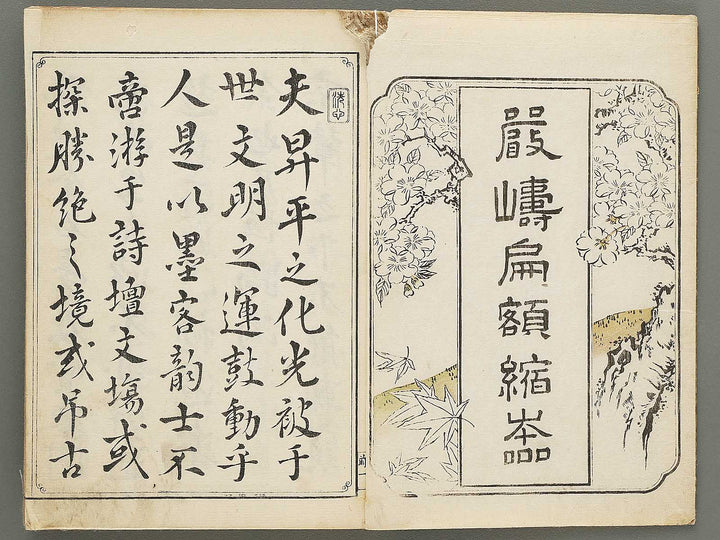 嚴嶹扁額縮本
夫昇平之化光被于
世文明之運鼓動乎
人是以墨客韵士不
啻游于詩壇文塲或
探勝絶之境或吊古